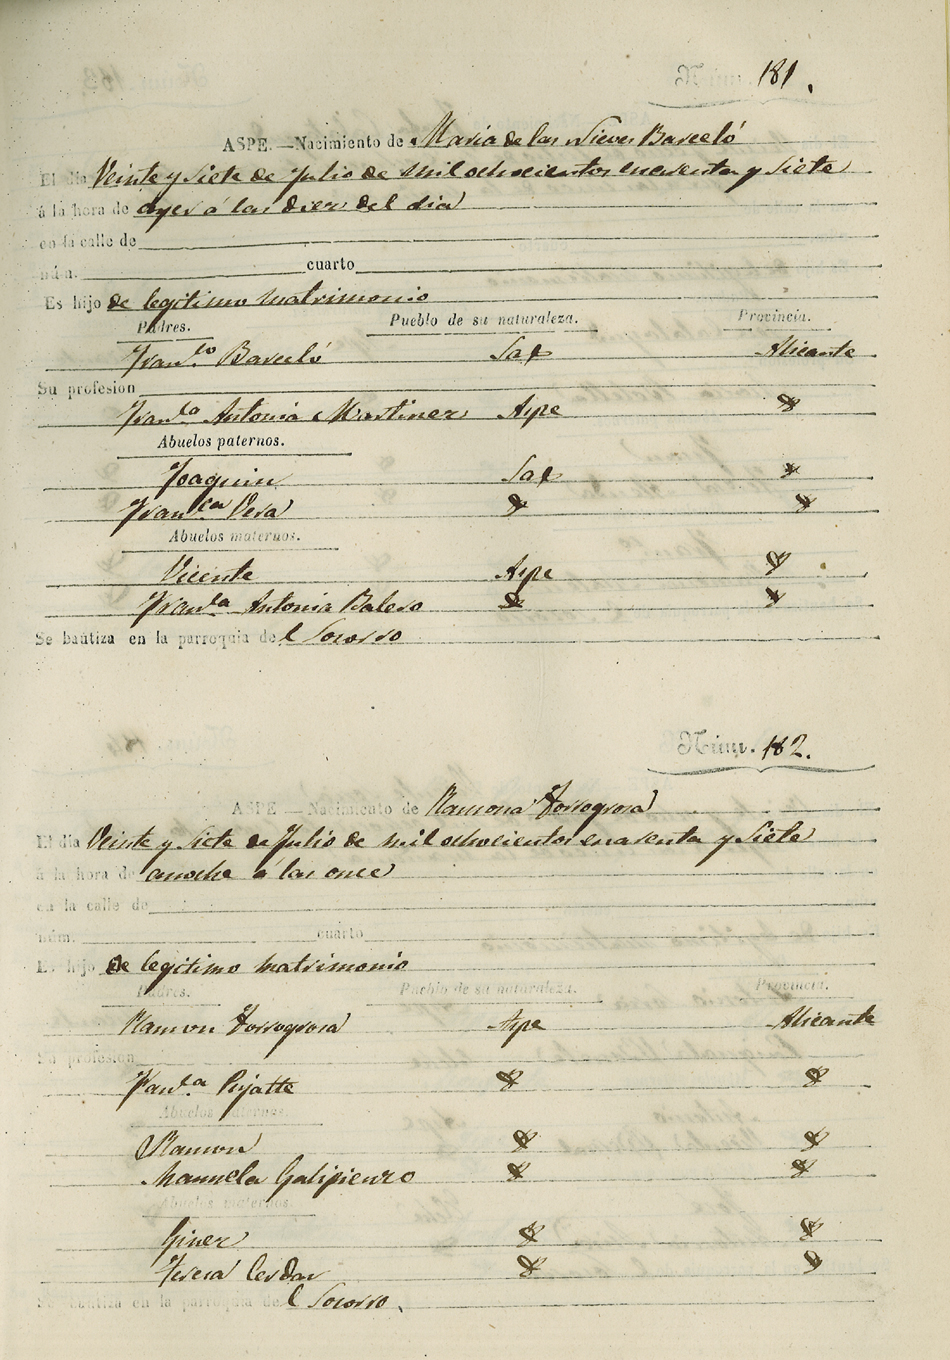 Núm. 181.
ASPE.—Nacimiento de Maria de las Nieves Barceló
El dia Veinte y siete de Julio de mil ochocientos cuarenta y siete
á la hora de ayer á las diez del dia
en la calle de
núm. cuarto
Es hijo de legitimo matrimonio
Padres. Pueblo de su naturaleza. Provincia.
Fran.co Barceló Sax Alicante
Su profesion
Fran.ca Antonia Martinez Aspe
Abuelos paternos.
Joaquin Sax
Fran.ca Vera
Abuelos maternos.
Vicente Aspe
Fran.ca Antonia
Se bautiza en la parroquia de l Socorro
Núm. 182.
ASPE.—Nacimiento de Ramona Torregrosa
El dia Veinte y siete de Julio de mil ochocientos cuarenta y siete
á la hora de anoche á las once
en la calle de
núm. cuarto
Es hijo de legitimo matrimonio
Padres. Pueblo de su naturaleza. Provincia.
Ramon Torregrosa Aspe Alicante
Su profesion
Fran.ca Pujalte
Abuelos paternos.
Ramon
Manuela Galipienzo
Abuelos maternos.
Giner
Teresa Cerdan
Se bautiza en la parroquia de l Socorro.